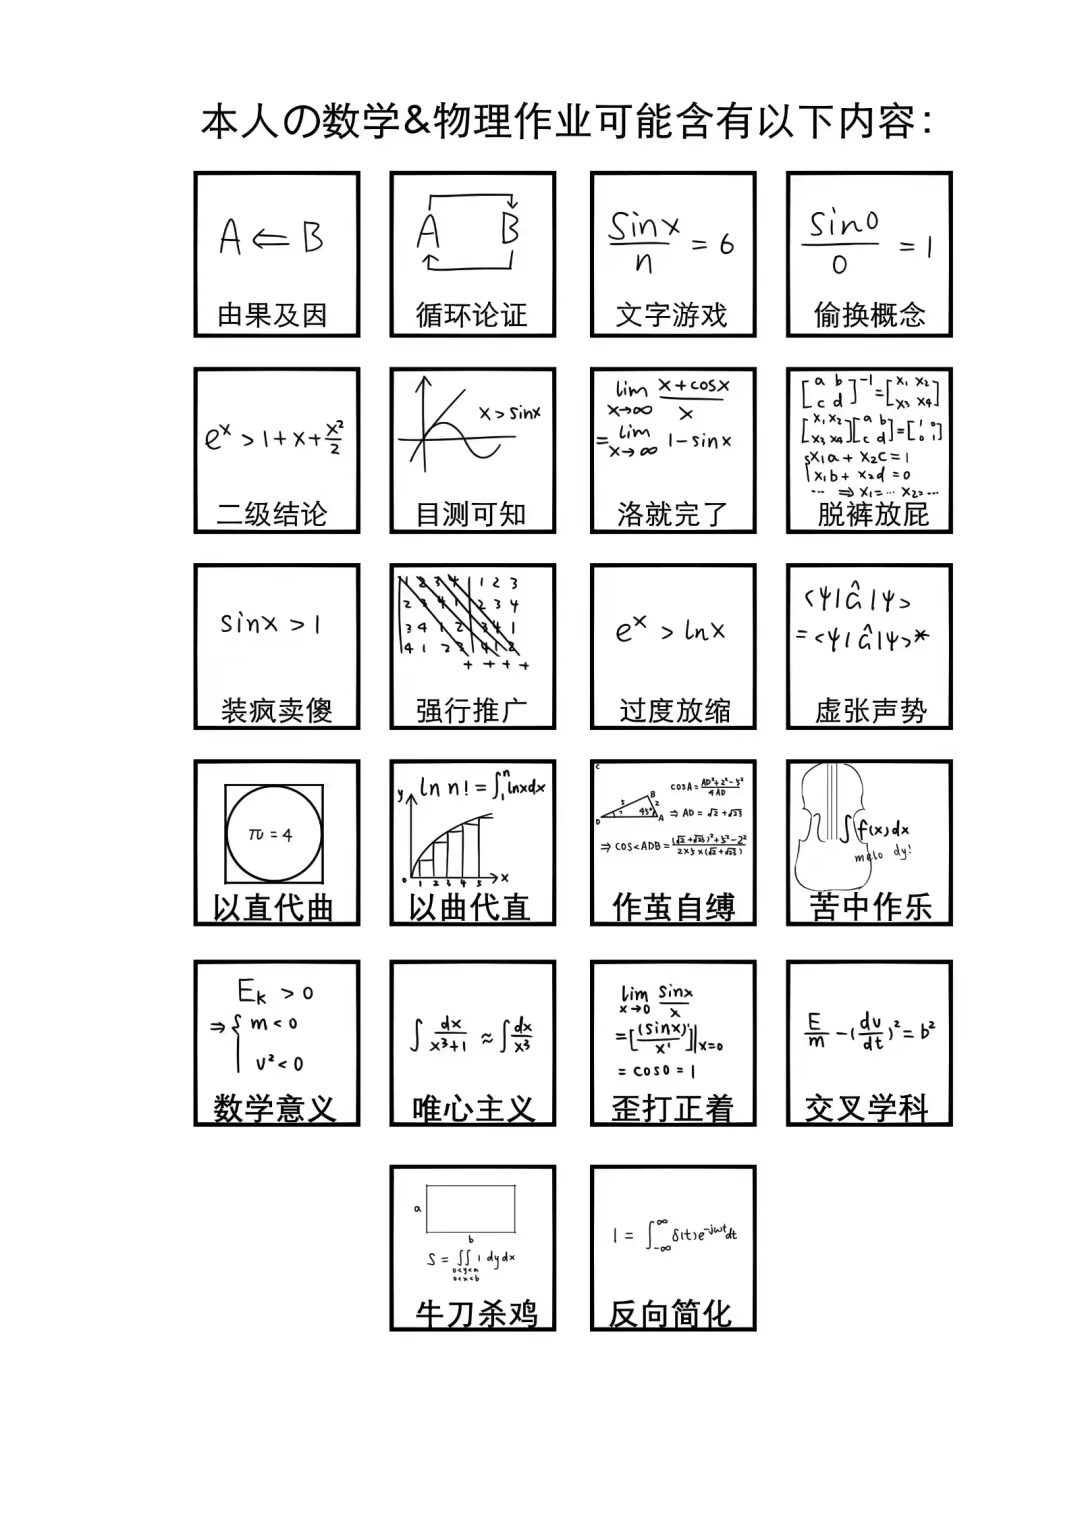 本人の数学&物理作业可能含有以下内容:
A ⇐ B
由果及因
A B
循环论证
sinx/n = 6
文字游戏
sin0/0 = 1
偷换概念
eˣ > 1 + x + x²/2
二级结论
x > sinx
目测可知
lim x→∞ (x + cosx)/x
= lim x→∞ 1 - sinx
洛就完了
[a b c d]⁻¹ = [x₁ x₂ x₃ x₄]
[x₁ x₂ x₃ x₄][a b c d] = [1 0 0 1]
{x₁a + x₂c = 1
x₁b + x₂d = 0
... ⇒ x₁ = ... x₂ = ...
脱裤放屁
sinx > 1
装疯卖傻
1 2 3 4 1 2 3
2 3 4 1 2 3 4
3 4 1 2 3 4 1
4 1 2 3 4 1 2
+ + + +
强行推广
eˣ > lnx
过度放缩
<ψ|â|ψ>
= <ψ|â|ψ>*
虚张声势
π = 4
以直代曲
ln n! = ∫₁ⁿ lnxdx
y
0 1 2 3 4 5 x
以曲代直
C
B
5 2
D ? 45° A
cosA = (AD²+2²-5²)/4AD
⇒ AD = √2 + √23
⇒ cos<ADB = ((√2+√23)²+5²-2²)/(2×5×(√2+√23))
作茧自缚
∫f(x)dx
melo dy!
苦中作乐
Eₖ > 0
⇒ { m < 0
v² < 0
数学意义
∫ dx/(x³+1) ≈ ∫ dx/x³
唯心主义
lim x→0 sinx/x
= [(sinx)'/x']|x=0
= cos0 = 1
歪打正着
E/m - (dv/dt)² = b²
交叉学科
a
b
S = ∬ 1 dydx
0<y<a
0<x<b
牛刀杀鸡
1 = ∫₋∞^∞ δ(t)e^(-jωt)dt
反向简化